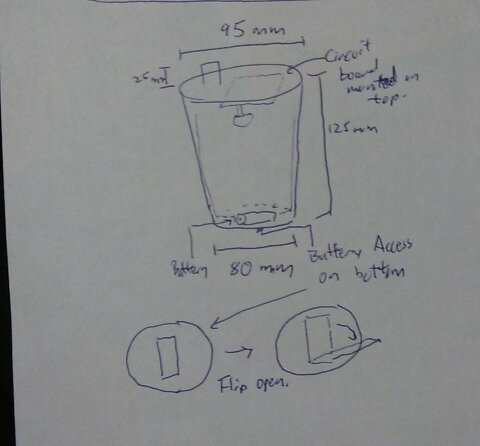 95 mm
Circuit
board
mounted on
top.
25mm
125mm
Battery
80 mm
Battery Access
on bottom
Flip open.